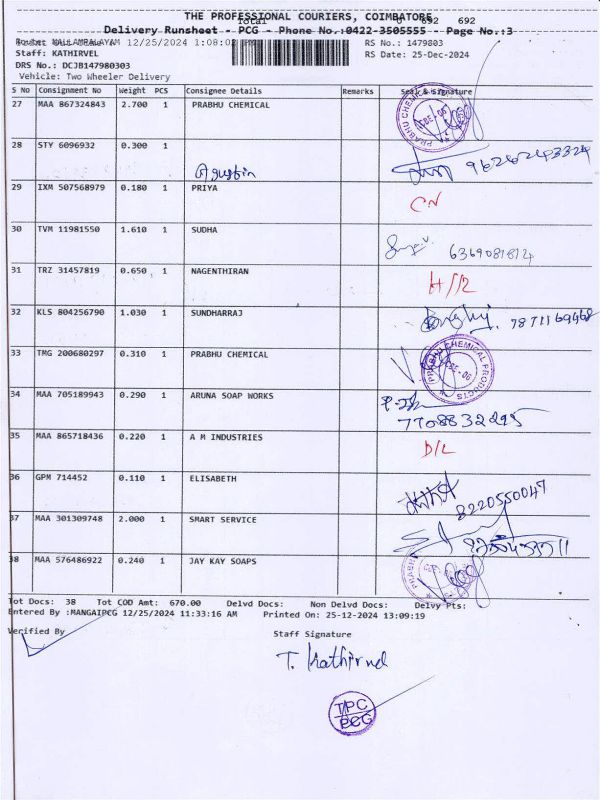 THE PROFESSIONAL COURIERS, COIMBATORE
Total 0 692 692
Delivery Runsheet - PCG - Phone No.:0422-3505555 - Page No.:3
Route: NALLAMPALAYAM 12/25/2024 1:08:02 PM RS No.: 1479803
Staff: KATHIRVEL RS Date: 25-Dec-2024
DRS No.: DCJB147980303
Vehicle: Two Wheeler Delivery
S No Consignment No Weight PCS Consignee Details Remarks Seal & Signature
27 MAA 867324843 2.700 1 PRABHU CHEMICAL
28 STY 6096932 0.300 1
Agustin 9626243324
29 IXM 507568979 0.180 1 PRIYA CN
30 TVM 11981550 1.610 1 SUDHA
31 TRZ 31457819 0.650 1 NAGENTHIRAN
32 KLS 804256790 1.030 1 SUNDHARRAJ 7871169468
33 TMG 200680297 0.310 1 PRABHU CHEMICAL
PRABHU CHEMICAL PRODUCTS CBE-06
34 MAA 705189943 0.290 1 ARUNA SOAP WORKS
7708832295
35 MAA 865718436 0.220 1 A M INDUSTRIES D/L
36 GPM 714452 0.110 1 ELISABETH
8220550047
37 MAA 301309748 2.000 1 SMART SERVICE
38 MAA 576486922 0.240 1 JAY KAY SOAPS
Tot Docs: 38 Tot COD Amt: 670.00 Delvd Docs: Non Delvd Docs: Delvy Pts:
Entered By :MANGAIPCG 12/25/2024 11:33:16 AM Printed On: 25-12-2024 13:09:19
Verified By Staff Signature
T. Kathirvel
TPC
PCG